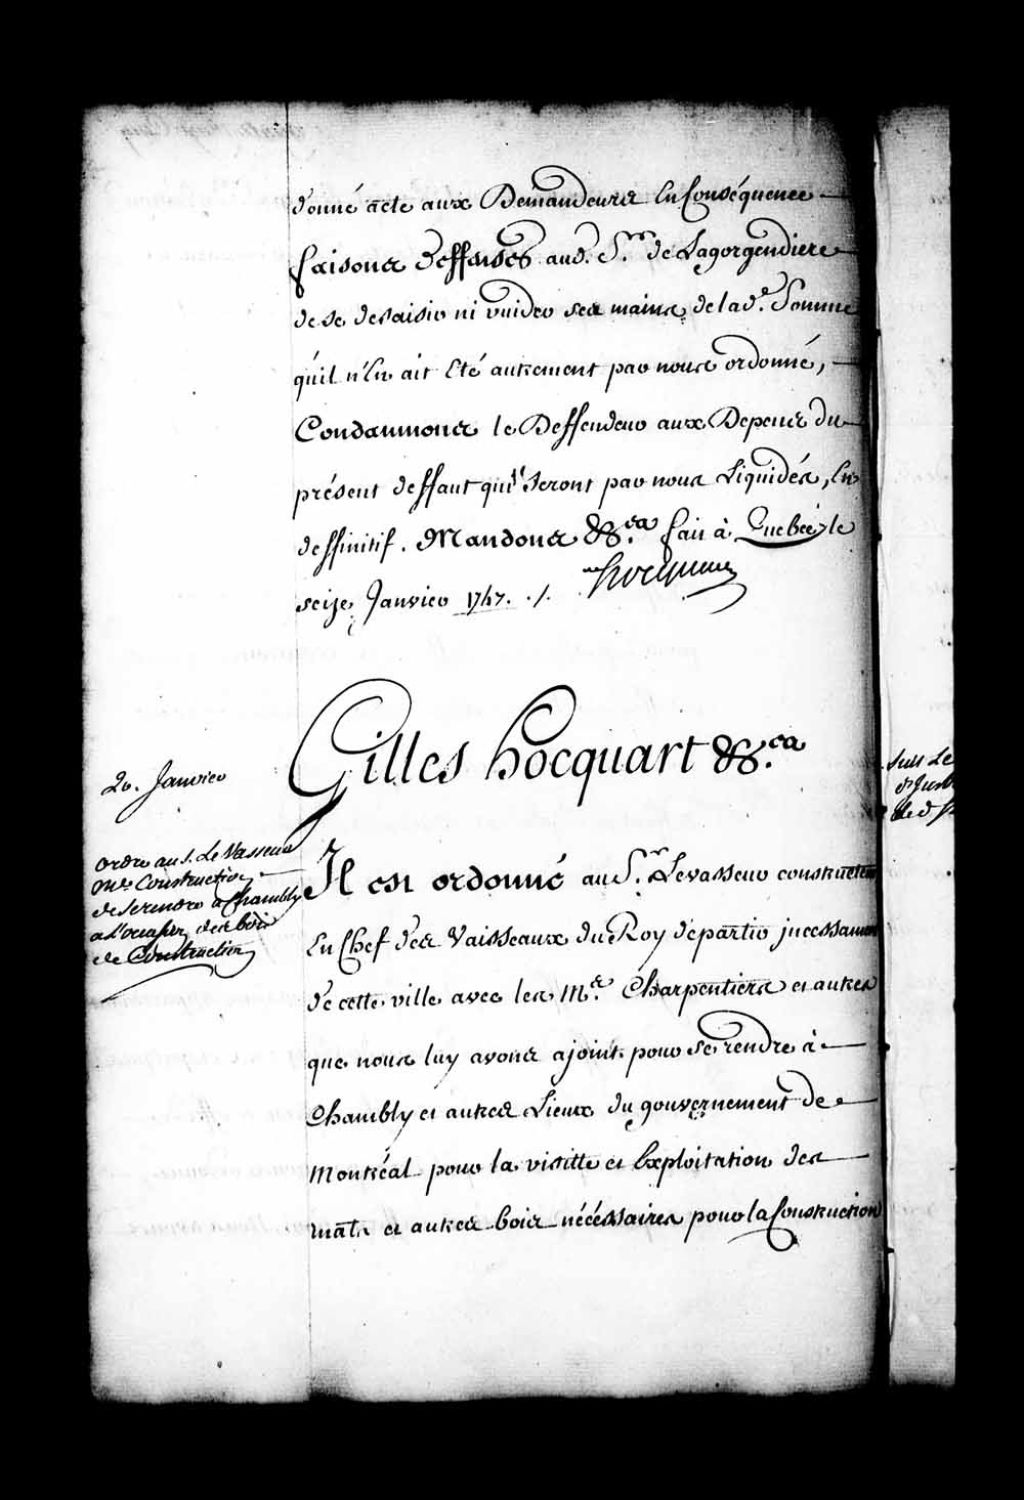 donné acte aux Demandeurs En Conséquence
faisons deffenses aud. Sr. de Lagorgendiere
de se desaisir ni vuider ses mains de lad.e Somme
qu'il n'En ait Eté autrement par nous ordonné,
Condamnons le Deffendeur aux Depens du
présent deffaut qui Seront par nous Liquidés, En
deffinitif. Mandons &c.a fait à Quebec, le
seize Janvier 1747. ./. Hocquart
Gilles hocquart &c.a
20. Janvier
ordre au s. Le Vasseur
me Constructeur
de se rendre a Chambly
a l'occasion des bois
de Construction
Il est ordonné au Sr. Levasseur constructeur
En Chef des Vaisseaux du Roy de partir incessament
de cette ville avec les Mes. Charpentiers et autres
que nous luy avons ajoint pour se rendre à
Chambly et autres Lieux du gouvernement de
Montréal pour la visitte et Exploitation des
mats et autres bois nécéssaires pour la Construction